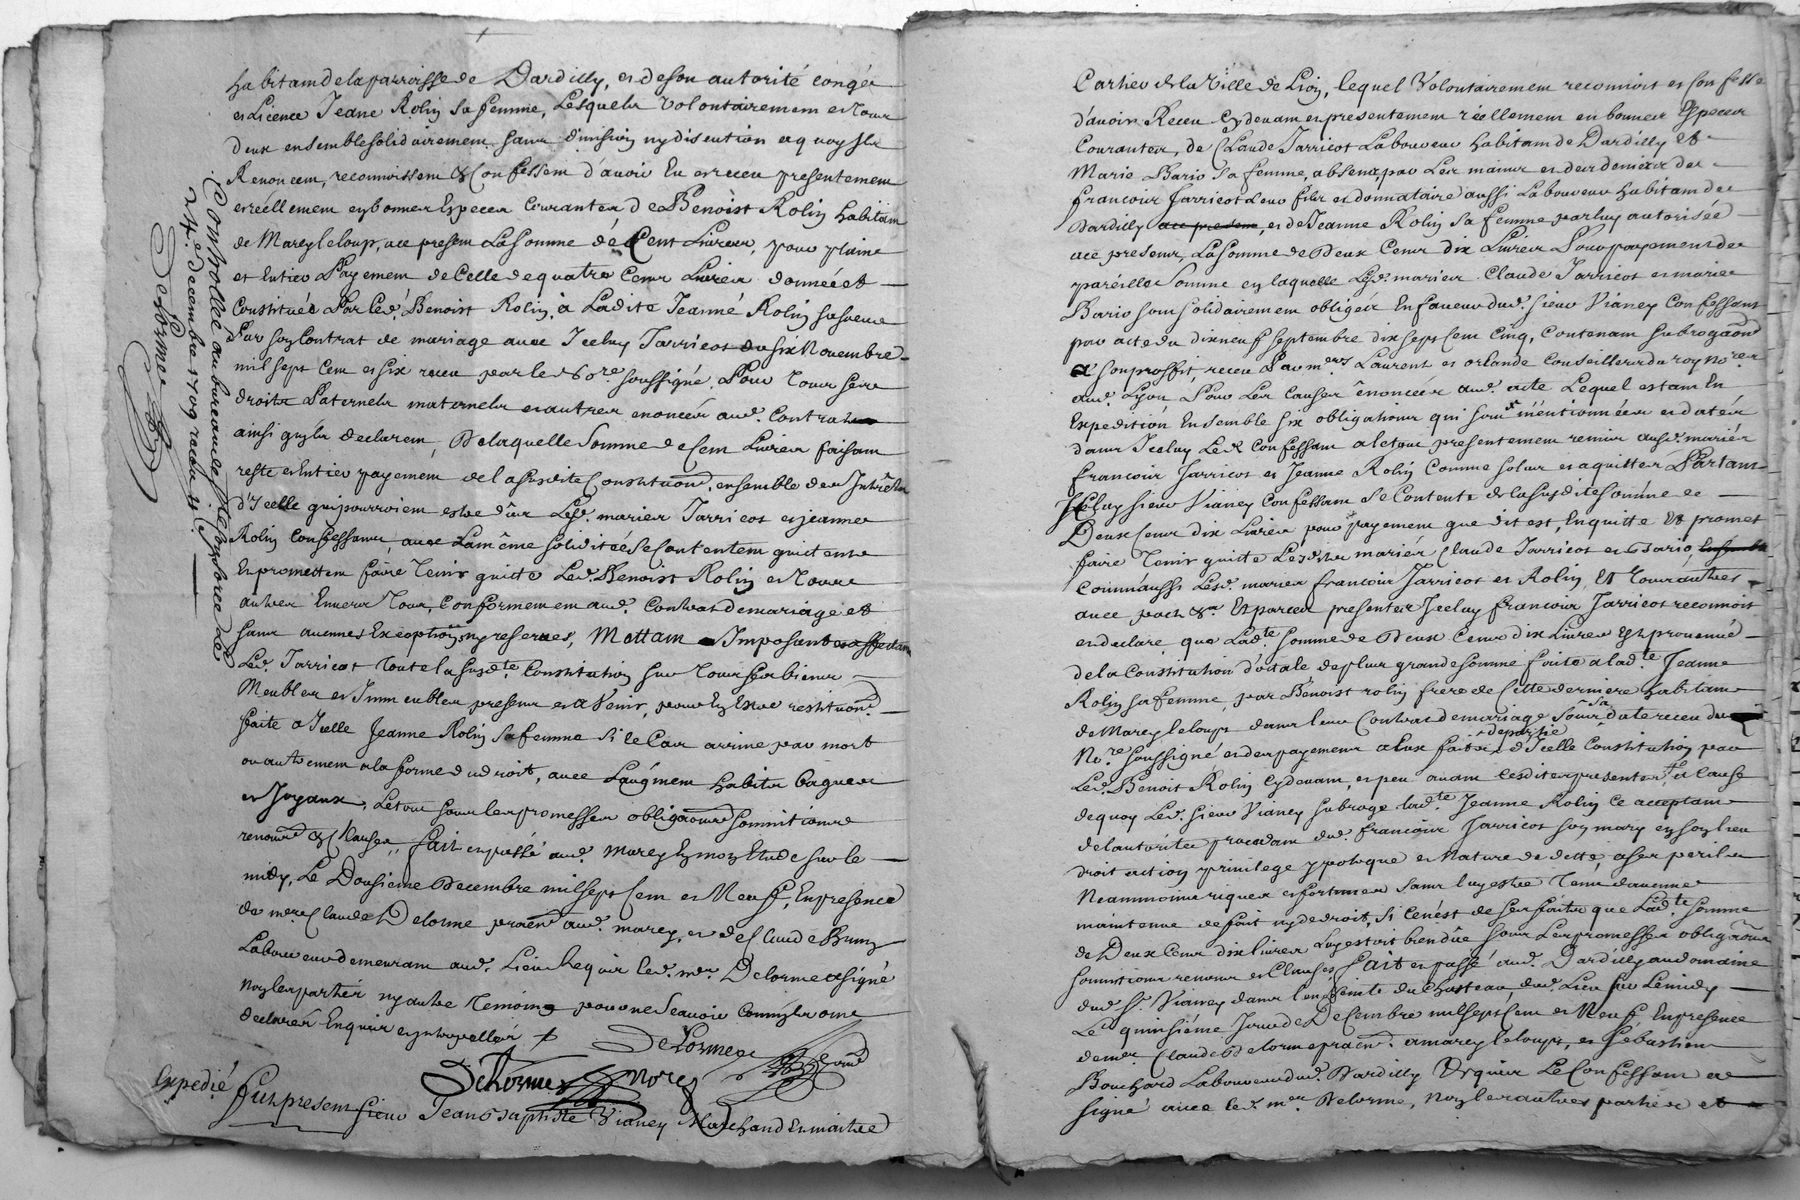 habitam de la parroisse de Dardilly, et de son autorité congée
et Licence Jeane Rolin sa femme, Lesquels volontairement et Tous
deux ensemble solidairement sans division ny discution a quoy Ils
Renoncent, reconnoissent & Confessent d'avoir Eu et receu presentement
et réellement en bonnes Especes Courantes de Benoist Rolin habitam
de Marcy le loup, ice present La Somme de Cent Livres, pour plaine
et Entier Payement de Celle de quatre Cens Livres donnée et
Constituée Par led. Benoist Rolin, à Ladite Jeanne Rolin sa soeur
Par son Contrat de mariage avec Iceluy Jarricot du six Novembre
mil sept Cent et six receu par le No.re soussigné, Pour Tous ses
droits Paternels maternels et autres enoncés aud. Contrat
ainsi quils declarent, De laquelle Somme de Cent Livres faisant
reste et Entier payement de la susdite Constituon, ensemble des Intérêts
d'Icelle qui pourroient estre dûs Lesd. mariés Jarricot et jeanne
Rolin Confessants avec La même solidité se Contentent quittent
Et promettent faire Tenir quitte Led. Benoist Rolin et Tous
autres Envers Tous, Conformement aud. Contrat de mariage et
sans aucunes Exceptions ny reserves, Mettant Imposant et affectant
Led. Jarricot Toute la susd.te Constitution sur Tous ses biens
Meubles et Immeubles presens et a Venir, pour En Estre restituon
faite a Icelle Jeanne Rolin sa femme si le Cas arrive par mort
ou autrement a la forme du droit, avec L'augment habits bagues
et Joyaux, Le tout sous les promesses obligaons soumitions
renons & Clauses, fait et passé aud. Marcy En mon Etude sur le
midy, Le Dousieme Decembre mil sept Cent et Neuf, En presence
de me Claude Delorme praen aud. marcy, et de Claude Bruny
Laboureur demeurant aud. Lieu Lequel led. me Delorme a signé
Non les parties ny autre Temoing pour ne sçavoir Comme ils ont
declarés Enquis et interpellés
Delorme
Delorme Nore
Expedié
fut present sieur Jean Baptiste Vianey Marchand Et maitre
Controllée au bureau de
24.e decembre 1709 receu
Delorme
Cartier de la Ville de Lion, lequel Volontairement reconnoit et Confesse
d'avoir Receu Cy devant et presentement réellement en bonnes Especes
Courantes, de Claude Jarricot Laboureur habitant de Dardilly et
Marie Bario sa femme, absens par Les mains et des deniers de
francois Jarricot Leur fils et donnataire aussi Laboureur habitant de
Dardilly ice present, et de Jeanne Rolin sa femme par luy autorisée
ice presens, La Somme de Deux Cens dix Livres Pour payement de
pareille Somme en laquelle Lesd. mariés Claude Jarricot et marie
Bario sont solidairement obligés En faveur dud. sieur Vianey Confessant
par acte du dix neuf septembre dix sept Cent Cinq, Contenant subrogaon
a son proffit, receu Par m.ers Laurent et orlande Conseillers du roy No.res
aud. Lyon Pour Les Causes énoncées aud. acte Lequel estant En
Expedition Ensemble six obligations qui sont mentionnées et datés
dans Iceluy Led. Confessant a le tout presentement remis ausd. mariés
francois Jarricot et Jeanne Rolin Comme solus et aquittés Partant
Iceluy sieur Vianey Confessant se Contente de la susdite somme de
Deux Cens dix Livres pour payement que dit est, En quitte Et promet
faire Tenir quitte Lesdits mariés Claude Jarricot et Bario, Ensemble
Comm'aussi Lesd. mariés francois Jarricot et Rolin, Et Tous autres
avec pact &a Et par ces presentes Iceluy francois Jarricot reconnoit
et declare que Lad.te somme de Deux Cens dix Livres Est provenue
de la Constitution dotale de plus grande somme faite a lad.te Jeanne
Rolin sa femme, par Benoist rolin frere de Cette derniere habitant
de Marcy le loup dans leur Contrat de mariage sous sa date receu du
No.re soussigné et des payemens a Eux faits de partie d'Icelle Constitution par
Led. Benoit Rolin Cy devant, et peu avant lesdites presentes, a Cause
de quoy Led. sieur Vianey subroge lad.te Jeanne Rolin Ce acceptant
de l'autorité procedant dud. francois Jarricot son mary en son lieu
droit action privilege ypoteque et Nature de dette, a ses perils
Neammoins riques et fortunes sans luy estre Tenu d'aucune
maintenue de fait ny de droit, si ce n'est de ses faits que Lad.te somme
de Deux Cens dix livres Luy estoit bien dûe sous Les promesses obligaons
soumitions renons et Clauses, fait et passé aud. Dardilly au domaine
dud. sr. Vianey dans l'enceinte du Chasteau, dud. Lieu sur Le midy
Le quinsiéme Jour de Decembre mil sept Cent et Neuf En presence
de me Claude Delorme praen. a marcy le loup, et Sebastien
Bouchard Laboureur dud. Dardilly Desquis Le Confessant a
signé avec led. me Delorme, Non les autres parties et